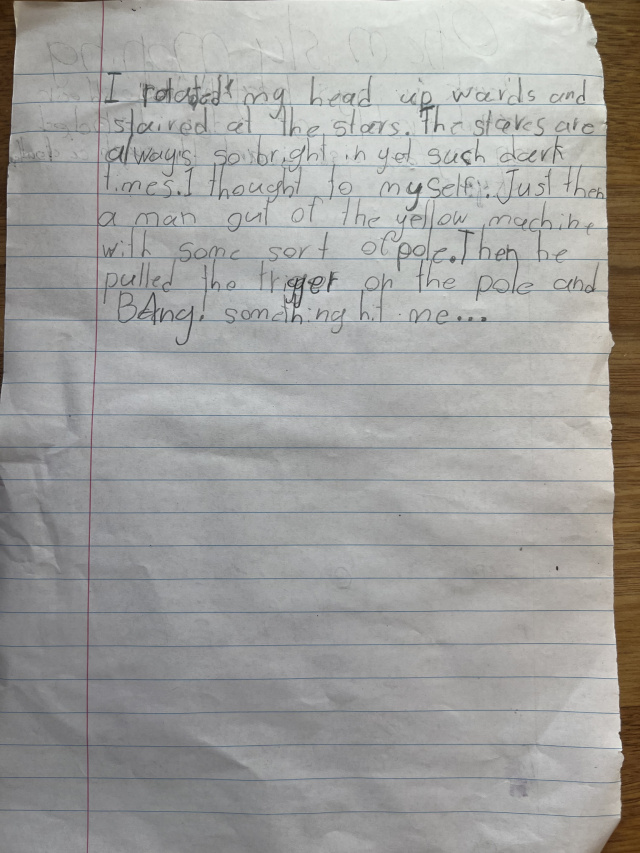 I rotated my head up wards and
staired at the stars. The stares are
always so bright in yet such dark
times. I thought to myself. Just then
a man gut of the yellow machine
with some sort of pole. Then he
pulled the trigger on the pole and
BAng! something hit me...